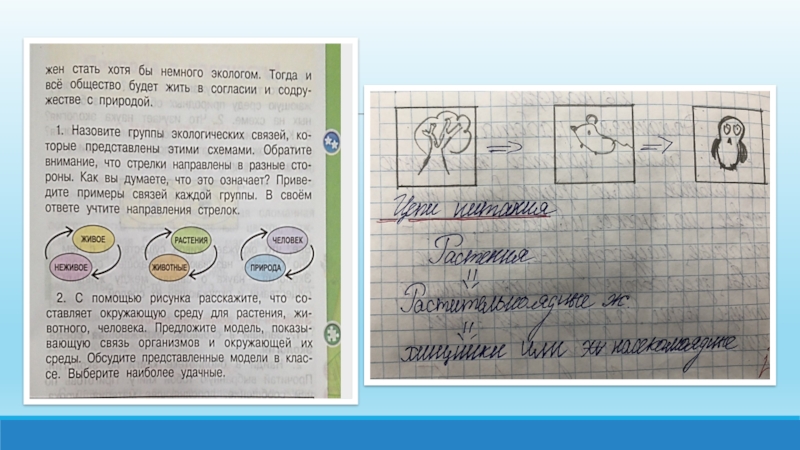 жен стать хотя бы немного экологом. Тогда и
всё общество будет жить в согласии и содру-
жестве с природой.
1. Назовите группы экологических связей, ко-
торые представлены этими схемами. Обратите
внимание, что стрелки направлены в разные сто-
роны. Как вы думаете, что это означает? Приве-
дите примеры связей каждой группы. В своём
ответе учтите направления стрелок.
ЖИВОЕ
НЕЖИВОЕ
РАСТЕНИЯ
ЖИВОТНЫЕ
ЧЕЛОВЕК
ПРИРОДА
2. С помощью рисунка расскажите, что со-
ставляет окружающую среду для растения, жи-
вотного, человека. Предложите модель, показы-
вающую связь организмов и окружающей их
среды. Обсудите представленные модели в клас-
се. Выберите наиболее удачные.
Цепи питания
Растения
Растительноядные ж
или насекомоядные